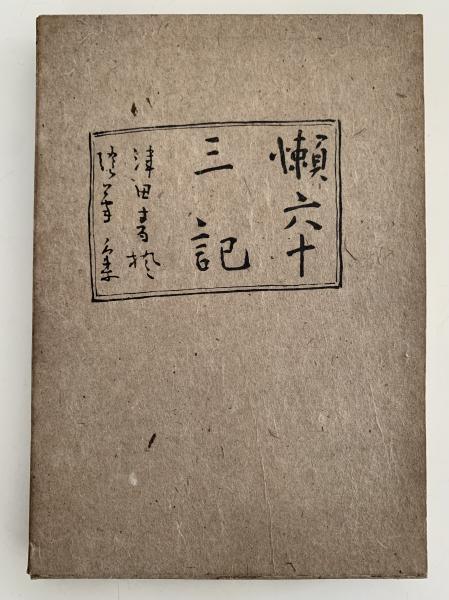 懶六十
三記
津田青楓
随筆集